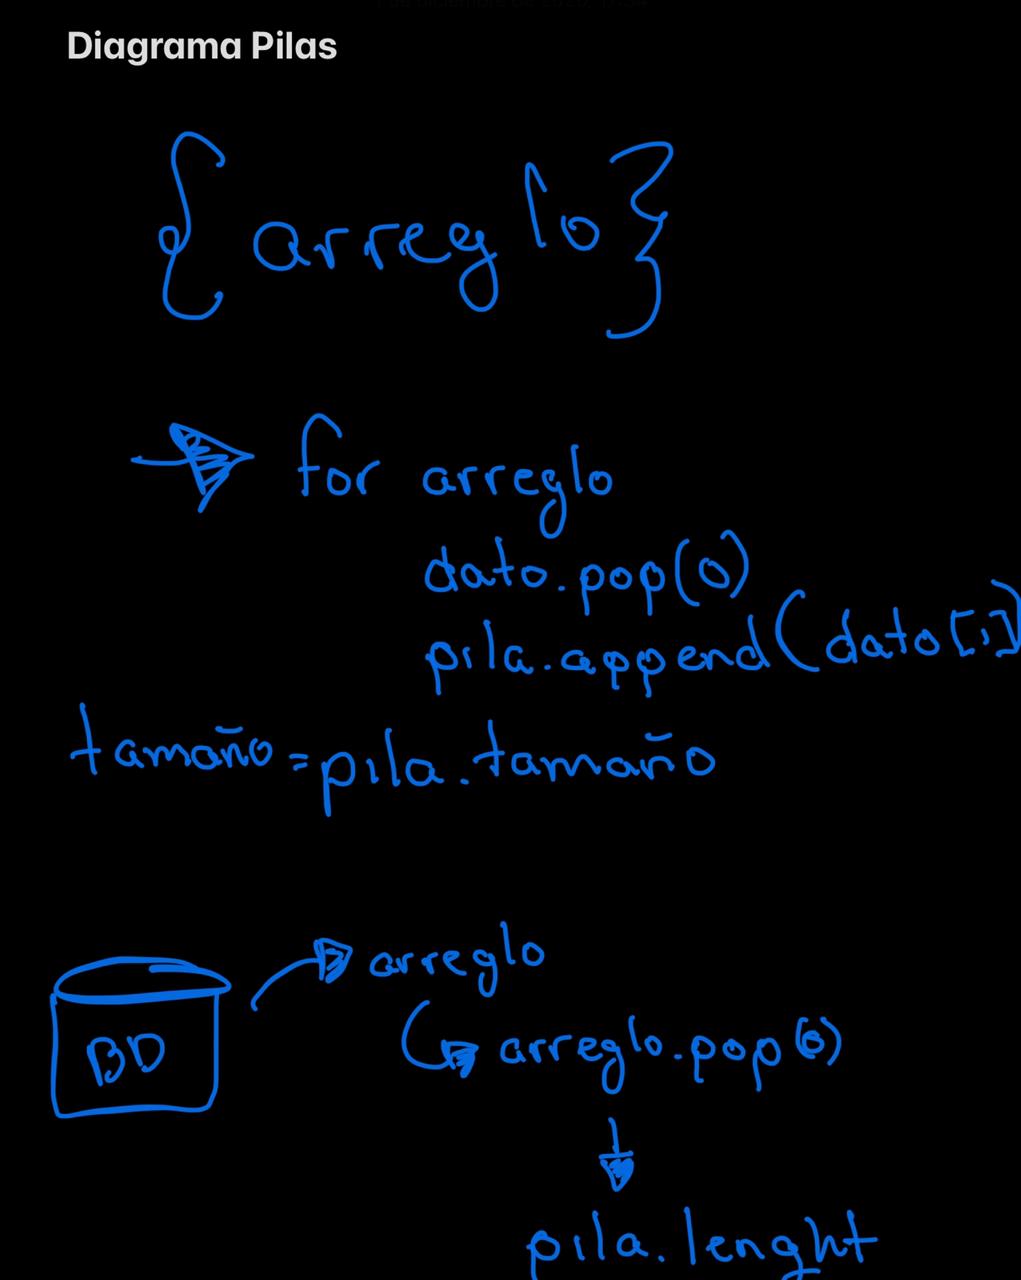 Diagrama Pilas
{ arreglo }
for arreglo
dato.pop(0)
pila.append(dato[i]
tamaño=pila.tamaño
BD
arreglo
arreglo.pop(0)
pila.lenght